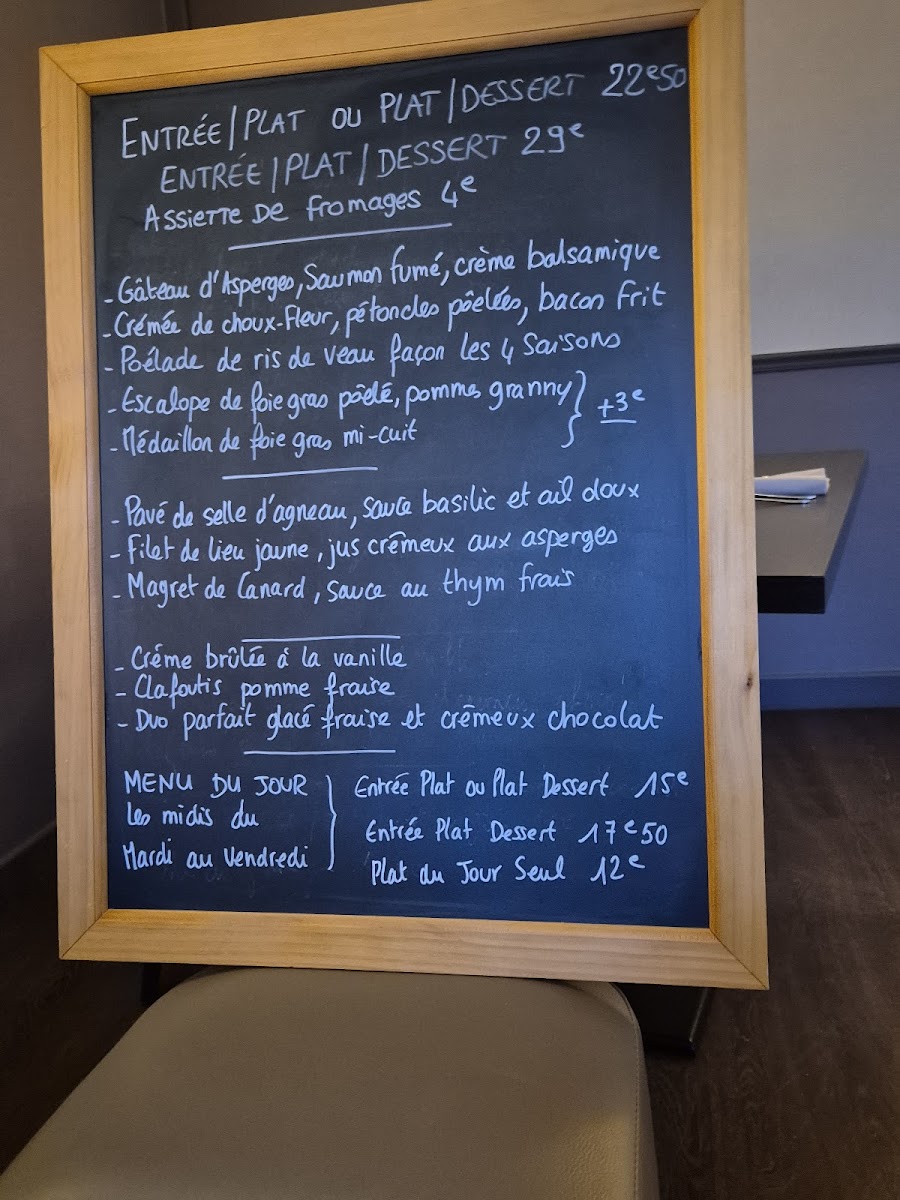 ENTRÉE/PLAT OU PLAT/DESSERT 22e50
ENTRÉE/PLAT/DESSERT 29e
ASSIETTE DE fromages 4e
- Gâteau d'Asperges, Saumon fumé, crème balsamique
- Crémée de choux-fleur, pétoncles pôelées, bacon frit
- Poélade de ris de veau façon les 4 saisons
- Escalope de foie gras pôélé, pomme granny } +3e
- Médaillon de foie gras mi-cuit
- Pavé de selle d'agneau, sauce basilic et ail doux
- Filet de lieu jaune, jus crêmeux aux asperges
- Magret de Canard, sauce au thym frais
- Créme brûlée à la vanille
- Clafoutis pomme fraise
- Duo parfait glacé fraise et crêmeux chocolat
MENU DU JOUR } Entrée Plat ou Plat Dessert 15e
les midis du Entrée Plat Dessert 17e50
Mardi au Vendredi Plat du Jour Seul 12e